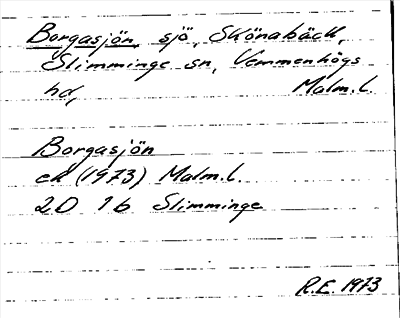 Borgasjön, sjö, Skönabäck,
Slimminge sn, Vemmenhögs
hd, Malm.l.
Borgasjön
ek (1973) Malm.l.
2D 1b Slimminge
R.E. 1973